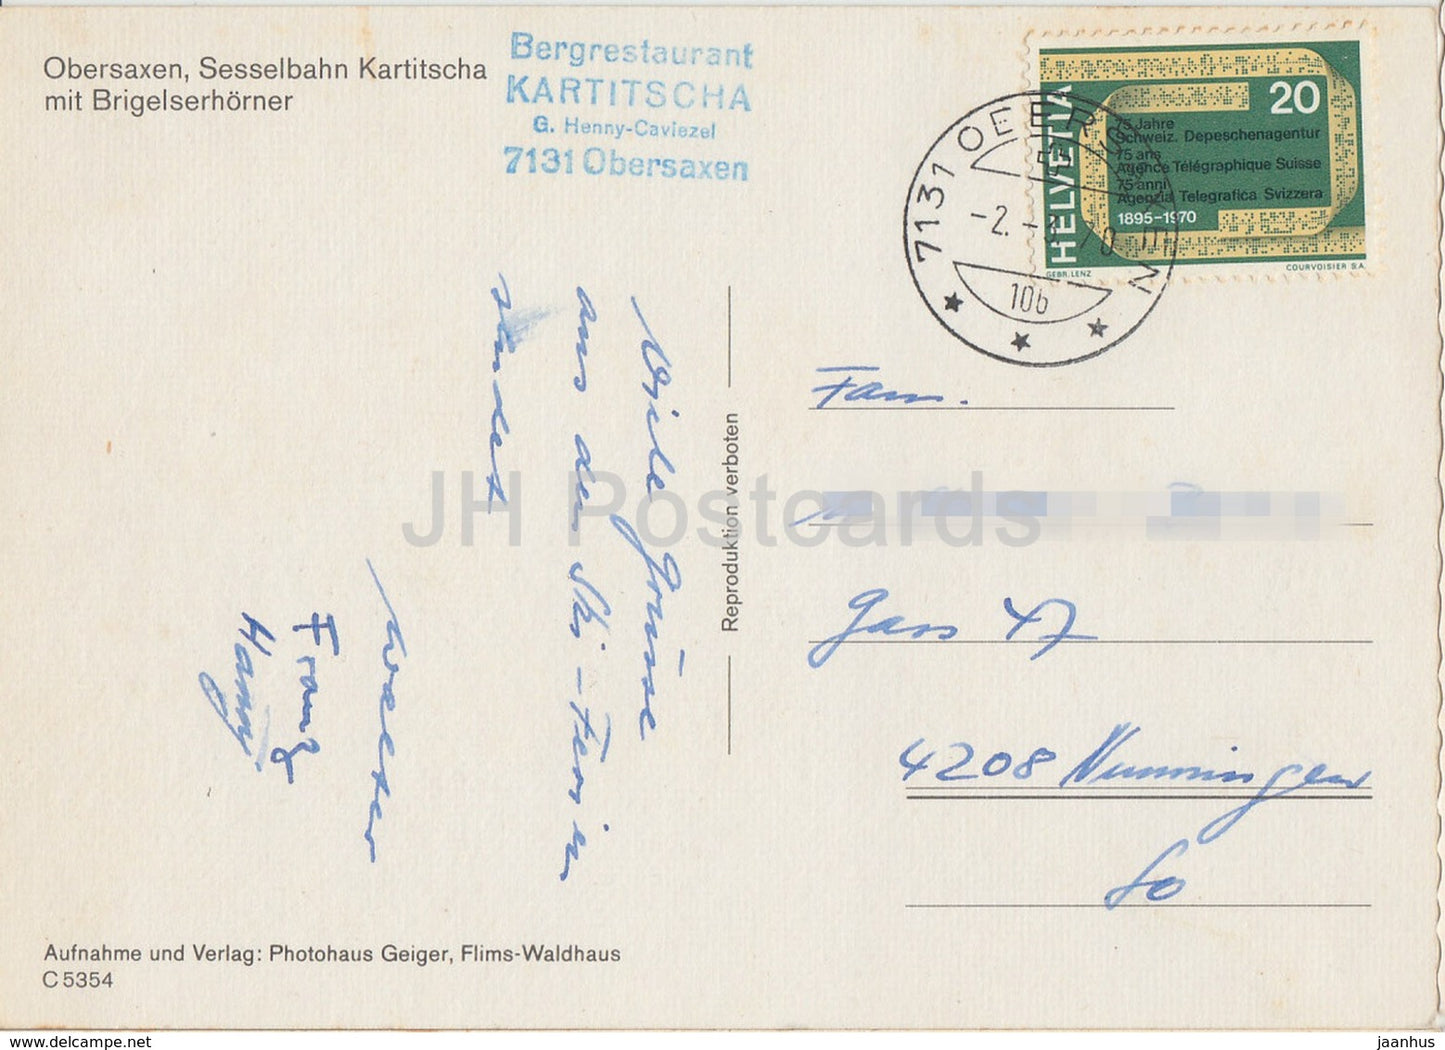 Obersaxen, Sesselbahn Kartitscha
mit Brigelserhörner
Bergrestaurant
KARTITSCHA
G. Henny-Caviezel
7131 Obersaxen
HELVETIA
20
75 Jahre
Schweiz. Depeschenagentur
75 ans
Agence Télégraphique Suisse
75 anni
Agenzia Telegrafica Svizzera
1895-1970
GEBR. LENZ
COURVOISIER S.A.
7131 OBERSAXEN
-2.-3. 70
10b
Viele Grüsse
aus den Ski-Ferien
sendet
Walter
Franz
Hanny
Reproduktion verboten
Fam.
Gass 47
4208 Nunningen
So
Aufnahme und Verlag: Photohaus Geiger, Flims-Waldhaus
C 5354
JH Postcards
my-store.delcampe.net
jaanhus